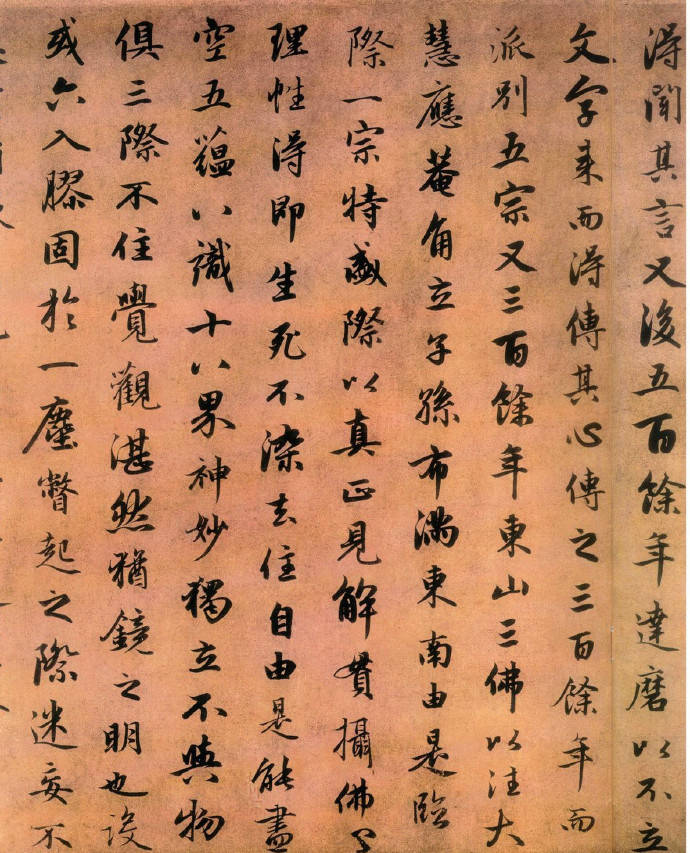 得聞其言又後五百餘年達磨以不立
文字来而得傳其心傳之三百餘年而
派別五宗又三百餘年東山三佛以往大
慧應菴角立子孫布滿東南由是臨
際一宗特盛際以真正見解貫攝佛
理性得即生死不染去住自由是能盡
空五蘊八識十八界神妙獨立不與物
俱三際不住覺觀湛然猶鏡之明也設
或六入膠固於一塵瞥起之際迷妄不